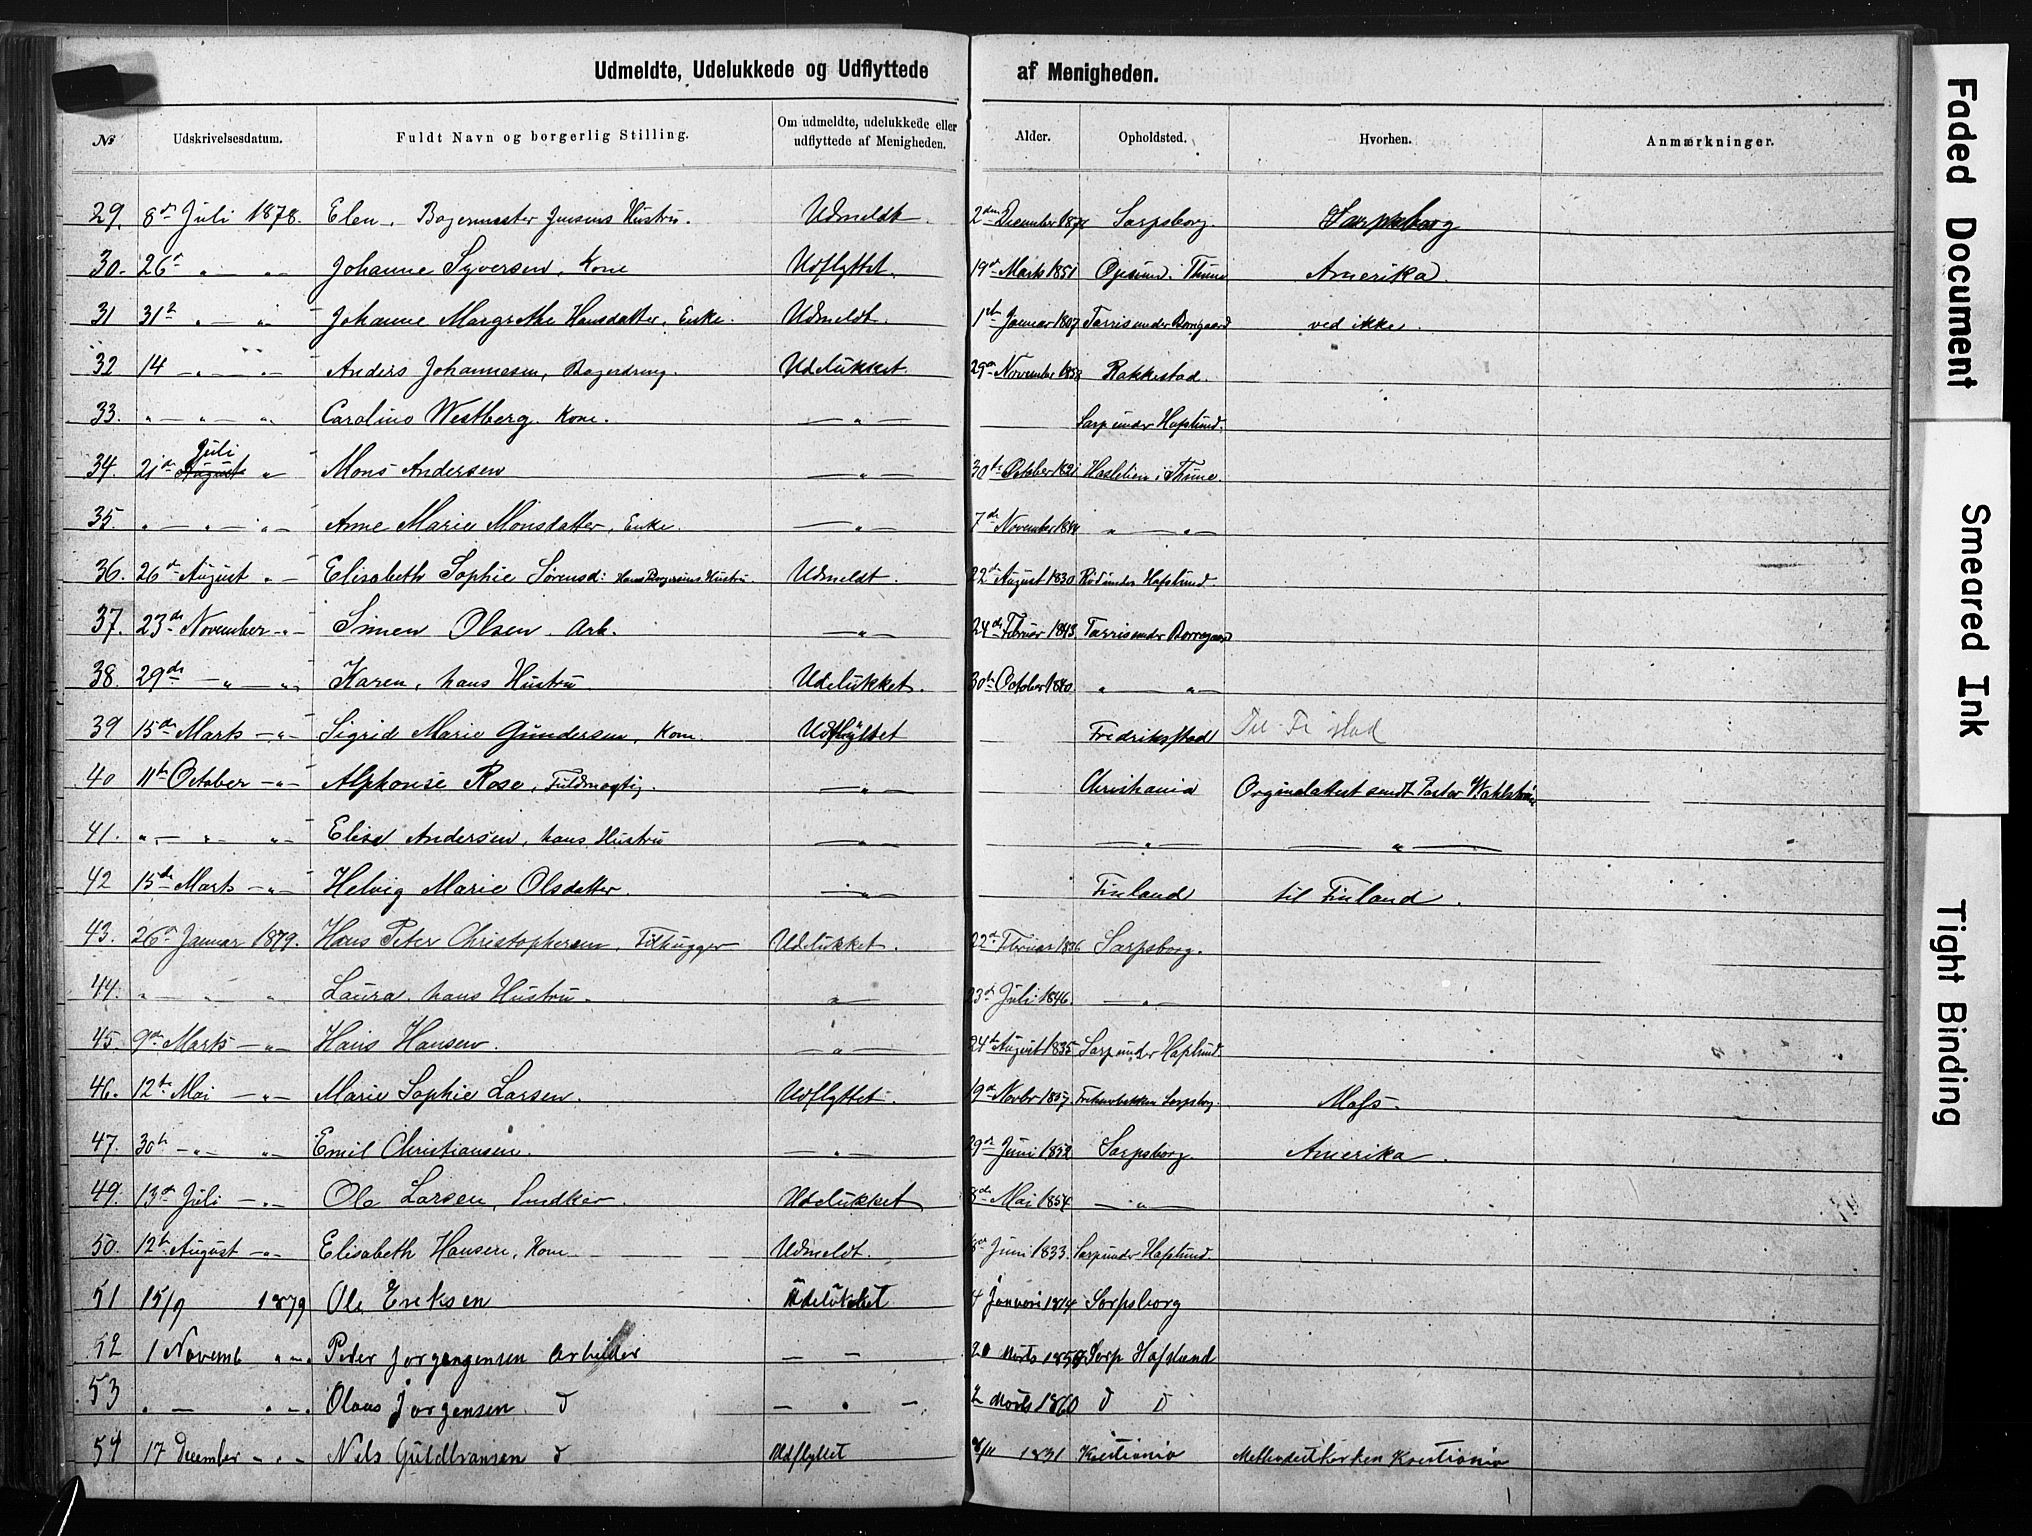 Udmeldte, Udelukkede og Udflyttede af Menigheden.
№ Udskrivelsesdatum. Fuldt Navn og borgerlig Stilling. Om udmeldte, udelukkede eller udflyttede af Menigheden. Alder. Opholdsted. Hvorhen. Anmærkninger.
29. 8de Juli 1878. Elen, Bagermester Jensens Hustru. Udmeldt. 2den December Sarpsborg. Sarpsborg
30. 26de " — " — Johanne Syversen, Kone Udflyttet. 19de Marts 1851 Opsund i Thune Amerika.
31 31te " — " — Johanne Margrethe Hansdatter, Enke. Udmeldt. 1ste Januar 1807 Tarris under Borregaard ved ikke.
32 14 — " — " — Anders Johannesen, Bagerdreng. Udelukket. 29de November 1858 Rakkestad.
33. " — " — " Caroline Westberg. Kone. — " — Sarp under Hafslund.
34. 21de August Juli " Mons Andersen — " — 30te October 1821 Haslelien i Thune.
35. " — " — " — Anne Marie Monsdatter, Enke. — " — 7de November " — " —
36. 26de August " — Elisabeth Sophie Sørensd: Hustru Udmeldt. 22de August 1830 Rød under Hafslund.
37. 23de November — " — Simen Olsen. Arb. — " — 24de Februar 1843. Tarris under Borregaard
38. 29de — " — " Karen, hans Hustru Udelukket. 30te October 1840 " — " —
39 15de Marts — " — Sigrid Marie Gundersen, Kone. Udflyttet Fredriksstad Til Fr stad
40 11te October — " — Alphonse Rose, Fuldmægtig. — " — Christiania Orginalattest sendt Pastor Wahlstrøm
41. " — " — " — Elise Andersen, hans Hustru — " — — " — — " —
42 15de Marts — " — Helvig Marie Olsdatter. — " — Finland til Finland.
43. 26de Januar 1879. Hans Peter Christophersen, Filhugger Udelukket. 22de Februar 1836 Sarpsborg.
44. " — " " Laura, hans Hustru. " — 23de Juli 1846. — " —
45. 9de Marts — " — Hans Hansen. — " — 24de August 1835 Sarp under Hafslund.
46. 12te Mai — " — Marie Sophie Larsen. Udflyttet. 19de Novbr 1857 Sarpsborg. Moss.
47. 30te — " — " — Emil Christiansen. — " — 29de Juni 1852 Sarpsborg. Amerika.
49. 13de Juli — " — Ole Larsen, Snedker Udelukket 8de Mai 1854 — " —
50. 12te August — " — Elisabeth Hansen, Kone Udmeldt. 8de Juni 1833. Sarp under Hafslund.
51 15/9 1879 Ole Eriksen Udelukket 4 Januari 1814 Sarpsborg
52 1 Novemb " — " Peder Jørgengensen Arbeider — — 20 Marts Sarp Hafslund
53 " — " — " Olaus Jørgensen. d — " — 2 Marts 1860 d d
54 17 December — " — Nils Guldbransen d Udflyttet 1831 Kristiania Methodistkirken Kristiania
Faded Document
Smeared Ink
Tight Binding